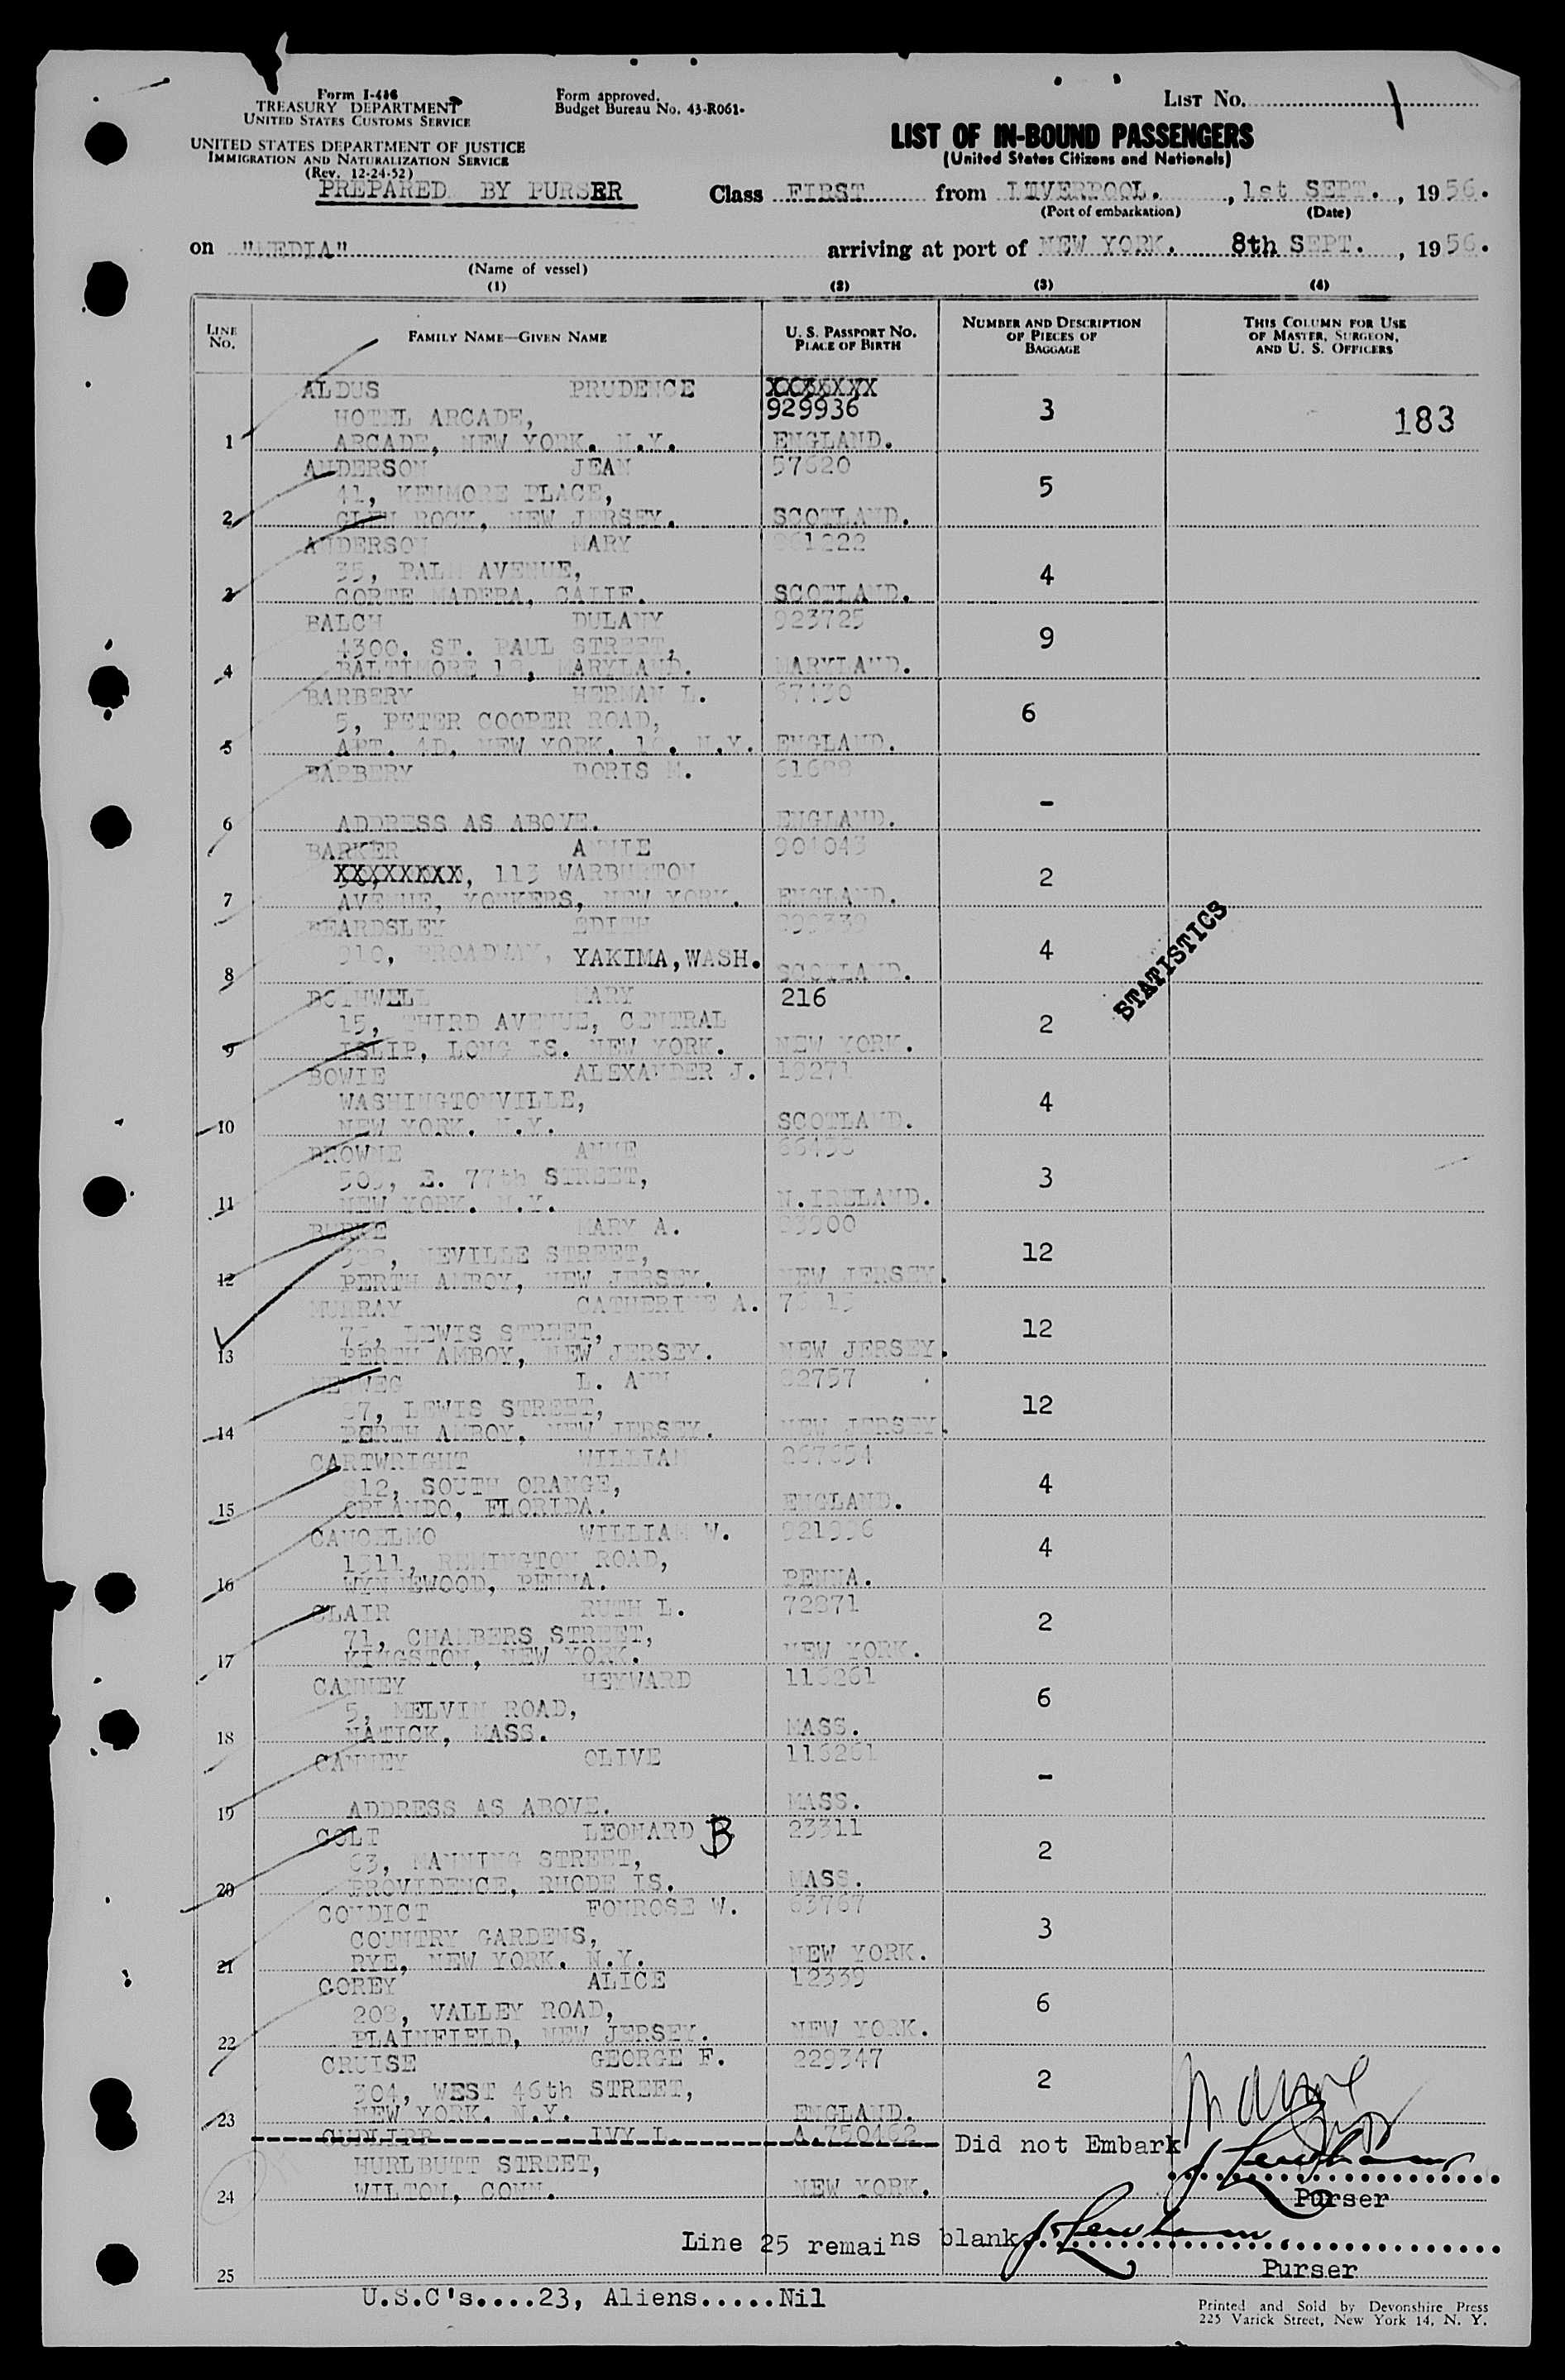 Form I-416
TREASURY DEPARTMENT
UNITED STATES CUSTOMS SERVICE
UNITED STATES DEPARTMENT OF JUSTICE
IMMIGRATION AND NATURALIZATION SERVICE
(Rev. 12-24-52)
PREPARED BY PURSER
Form approved.
Budget Bureau No. 43-R061-
LIST No. 1
LIST OF IN-BOUND PASSENGERS
(United States Citizens and Nationals)
Class FIRST from LIVERPOOL. , 1st SEPT. , 1956.
(Port of embarkation) (Date)
on "MEDIA" arriving at port of NEW YORK. 8th SEPT. , 1956.
(Name of vessel)
(1) (2) (3) (4)
LINE No. FAMILY NAME—GIVEN NAME U. S. PASSPORT No. PLACE OF BIRTH NUMBER AND DESCRIPTION OF PIECES OF BAGGAGE THIS COLUMN FOR USE OF MASTER, SURGEON, AND U. S. OFFICERS
ALDUS PRUDENCE XXXXXXX
HOTEL ARCADE, 929936 3 183
1 ARCADE, NEW YORK. N.Y. ENGLAND.
ANDERSON JEAN 57620
41, KENMORE PLACE, 5
2 GLEN ROCK, NEW JERSEY. SCOTLAND.
ANDERSON MARY
35, PALM AVENUE, 4
3 CORTE MADERA, CALIF. SCOTLAND.
BALCH DULANY 923725
4300. ST. PAUL STREET, 9
4 BALTIMORE 18, MARYLAND. MARYLAND.
BARBERY HERMAN L. 67430
5, PETER COOPER ROAD, 6
5 APT. 4D, NEW YORK. 10. N.Y. ENGLAND.
BARBERY DORIS M.
-
6 ADDRESS AS ABOVE. ENGLAND.
BARKER ANNIE 901043
XXXXXXXX, 113 WARBURTON 2
7 AVENUE, YONKERS, NEW YORK. ENGLAND.
BEARDSLEY EDITH
910, BROADWAY, YAKIMA, WASH. 4 STATISTICS
8 SCOTLAND.
BOTHWELL MARY 216
15, THIRD AVENUE, CENTRAL 2
9 ISLIP, LONG IS. NEW YORK. NEW YORK.
BOWIE ALEXANDER J. 19271
WASHINGTONVILLE, 4
10 NEW YORK. N.Y. SCOTLAND.
BROWNE ANNE
E. 77th STREET, 3
11 NEW YORK. N.Y. N.IRELAND.
BURKE MARY A.
NEVILLE STREET, 12
12 PERTH AMBOY, NEW JERSEY. NEW JERSEY.
MURRAY CATHERINE A.
LEWIS STREET, 12
13 PERTH AMBOY, NEW JERSEY. NEW JERSEY.
L. ANN 82757
LEWIS STREET, 12
14 PERTH AMBOY, NEW JERSEY. NEW JERSEY.
CARTWRIGHT WILLIAM
812, SOUTH ORANGE, 4
15 ORLANDO, FLORIDA. ENGLAND.
CANCELMO WILLIAM W. 921996
1311, REMINGTON ROAD, 4
16 WYNNEWOOD, PENNA. PENNA.
CLAIR RUTH L. 72871
71, CHAMBERS STREET, 2
17 KINGSTON, NEW YORK. NEW YORK.
CANNEY HEYWARD 116261
5, MELVIN ROAD, 6
18 NATICK, MASS. MASS.
CANNEY OLIVE 116261
-
19 ADDRESS AS ABOVE. MASS.
COLT LEONARD B 23311
63, MANNING STREET, 2
20 PROVIDENCE, RHODE IS. MASS.
CONDICT FONROSE W. 63767
COUNTRY GARDENS, 3
21 RYE, NEW YORK. N.Y. NEW YORK.
COREY ALICE 12339
208, VALLEY ROAD, 6
22 PLAINFIELD, NEW JERSEY. NEW YORK.
CRUISE GEORGE F. 229347
304, WEST 46th STREET, 2
23 NEW YORK. N.Y. ENGLAND.
CUDLIPP IVY L. A.750462 Did not Embark
HURLBUTT STREET,
24 WILTON, CONN. NEW YORK. Purser
Line 25 remains blank
25 Purser
U.S.C's....23, Aliens......Nil
Printed and Sold by Devonshire Press
225 Varick Street, New York 14, N. Y.